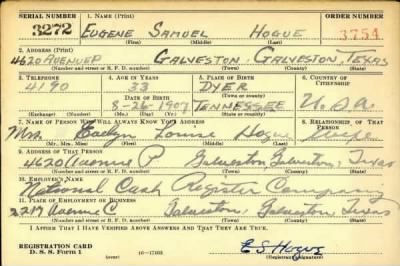 SERIAL NUMBER 1. NAME (Print) ORDER NUMBER
3272 EUGENE SAMUEL HOGUE 3754
(First) (Middle) (Last)
2. ADDRESS (Print)
4620 AVENUE P GALVESTON, GALVESTON, TEXAS
(Number and street or R. F. D. number) (Town) (County) (State)
3. TELEPHONE 4. AGE IN YEARS 5. PLACE OF BIRTH 6. COUNTRY OF CITIZENSHIP
4190 33 DYER
DATE OF BIRTH (Town or county)
8-26-1907 TENNESSEE U.S.A.
(Exchange) (Number) (Mo.) (Day) (Yr.) (State or country)
7. NAME OF PERSON WHO WILL ALWAYS KNOW YOUR ADDRESS 8. RELATIONSHIP OF THAT PERSON
Mrs. Evelyn Louise Hogue Wife
(Mr., Mrs., Miss) (First) (Middle) (Last)
9. ADDRESS OF THAT PERSON
4620 Avenue P Galveston, Galveston, Texas
(Number and street or R. F. D. number) (Town) (County) (State)
10. EMPLOYER'S NAME
National Cash Register Company
11. PLACE OF EMPLOYMENT OR BUSINESS
2217 Avenue C Galveston, Galveston, Texas
(Number and street or R. F. D. number) (Town) (County) (State)
I AFFIRM THAT I HAVE VERIFIED ABOVE ANSWERS AND THAT THEY ARE TRUE.
REGISTRATION CARD
D. S. S. Form 1 (over) 16—17105 E S Hogue
(Registrant's signature)